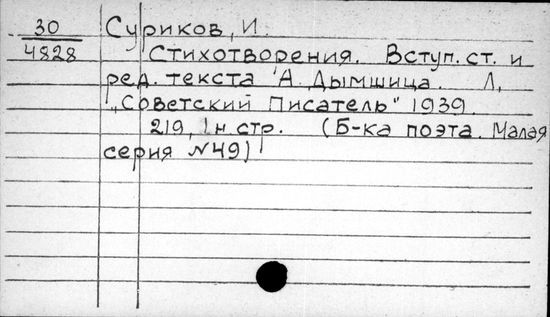 30 Суриков, И.
4828 Стихотворения. Вступ. ст. и
ред. текста А. Дымшица. Л,
"Советский Писатель" 1939.
219, 1н.стр. (Б-ка поэта. Малая
серия №49)